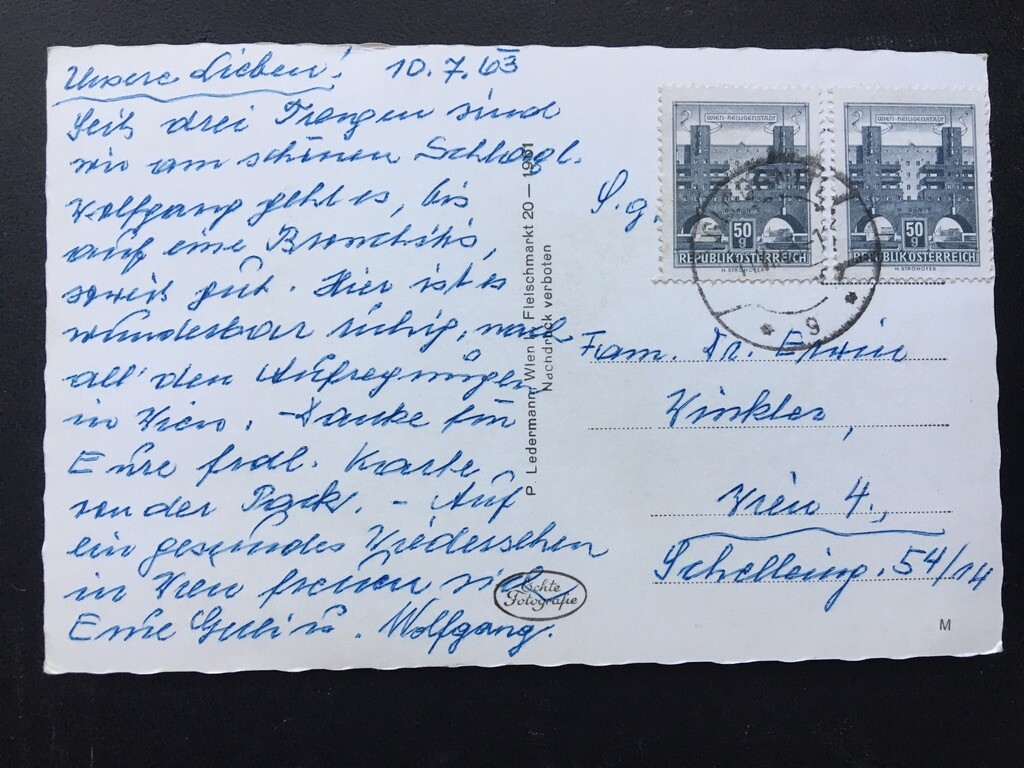 Unsere Lieben! 10.7.63
Seit drei Tagen sind
wir am schönen Schlögl.
Wolfgang geht es, bis
auf eine Bronchitis,
soweit gut. Hier ist es
wunderbar ruhig, nach
all' den Aufregungen
in Wien. - Danke für
Eure frdl. Karte
von der Pack. - Auf
ein gesundes Wiedersehen
in Wien freuen sich
Eure . Wolfgang.
P. Ledermann, Wien I, Fleischmarkt 20 — 1961
Nachdruck verboten
Echte
Fotografie
WIEN-HEILIGENSTADT
50
g
REPUBLIK ÖSTERREICH
H. STROHOFER
WIEN-HEILIGENSTADT
50
g
REPUBLIK ÖSTERREICH
H. STROHOFER
* 9 *
S.g.
Fam. Dr. Erwin
Winkler,
Wien 4.,
Schelleing. 54/14
M